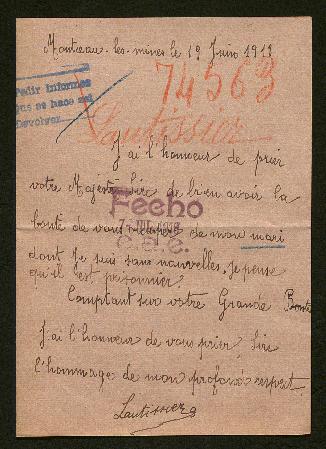 Montceau-les-mines le 19 Juin 1918
74563
Pedir Informes
que se hace así
Devolver
Lautissier
J'ai l'honneur de prier
votre Majesté Sire de bien avoir la
bonté de vous occuper de mon mari
Fecho
C. de C.
dont je suis sans nouvelles, je pense
qu'il est prisonnier.
Comptant sur votre Grande Bonté
J'ai l'honneur de vous prier Sire
l'hommage de mon profond respect.
Lautissier